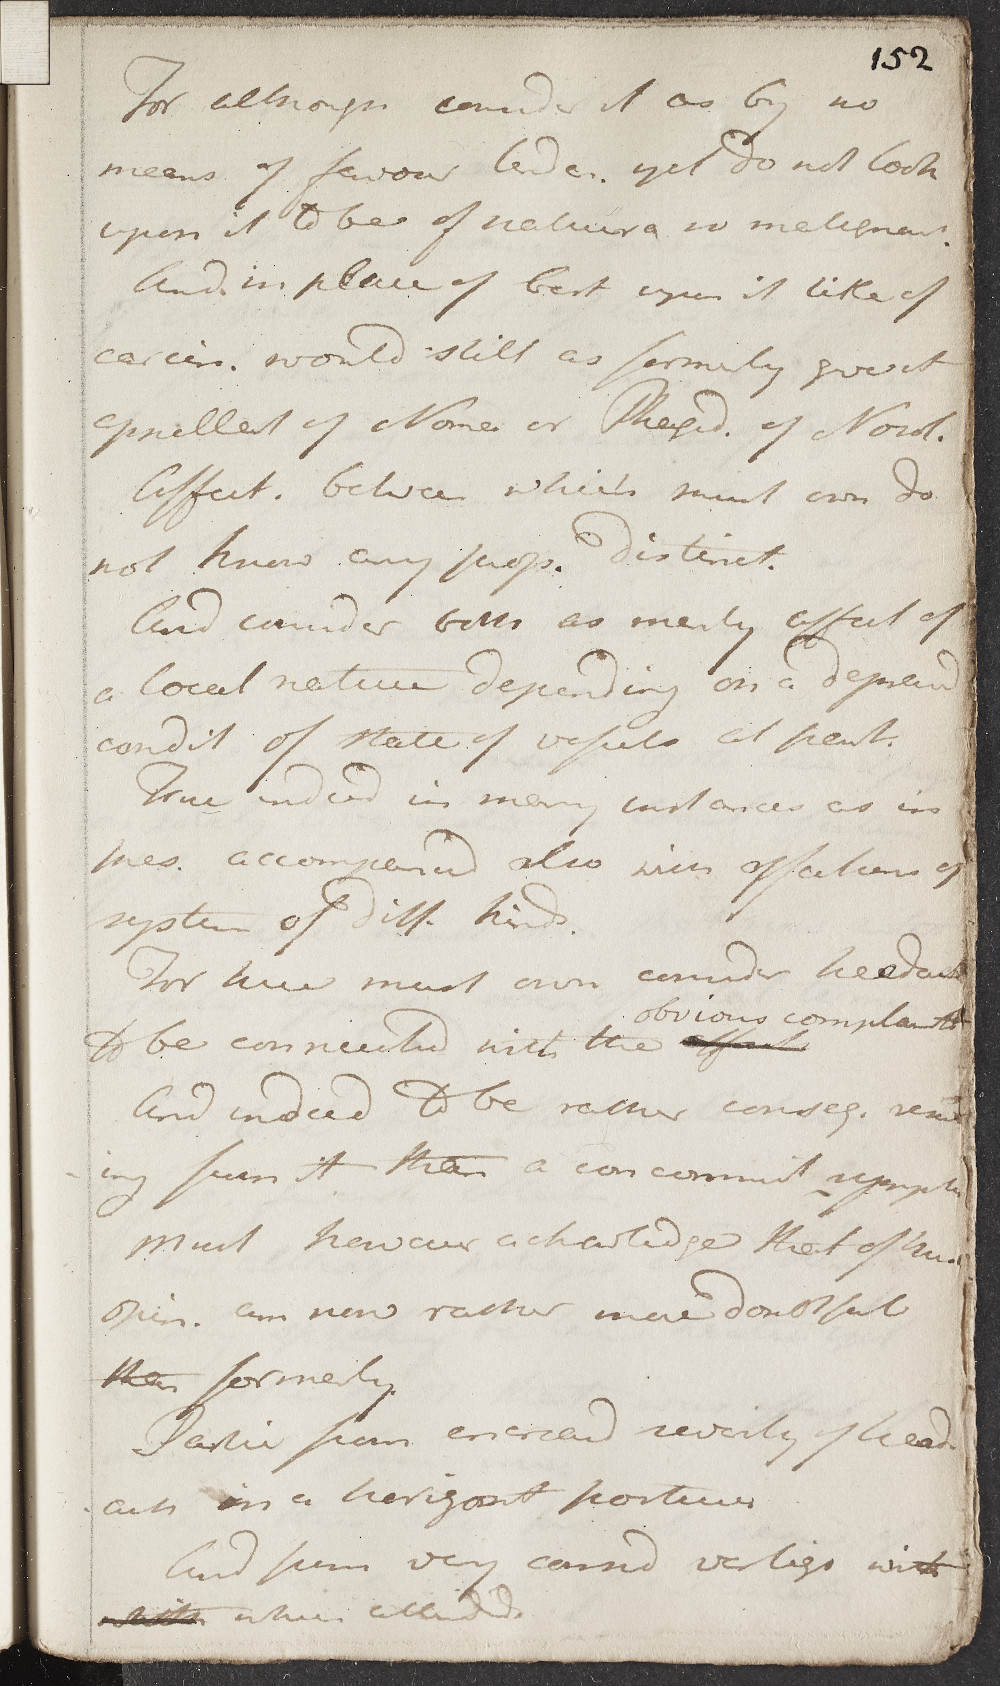 152
For although consider it as by no
means of favour tend.. yet do not look
upon it to be of nature so malignant.
And in place of best upon it like of
carcin. would still as formerly give it
epithet of Noma or Phaged. of Nosol.
Affect. between which must own do
not know any prop. distinct.
And consider both as merly affect of
a local nature depending on a depraved
condit of state of vessels at part.
True indeed in many instances as in
pres. accompanied also with affections of
system of diff. kinds.
For here must own consider headach
obvious complaint
to be connected with the affect
And indeed to be rather conseq. result
ing from it than a concommit symptom
Must however acknowledge that of this
opin. am now rather more doubtful
than formerly.
Partic from encreased severity of head
ach in a horizont posture
And from very consid vertigo with
with when attended.